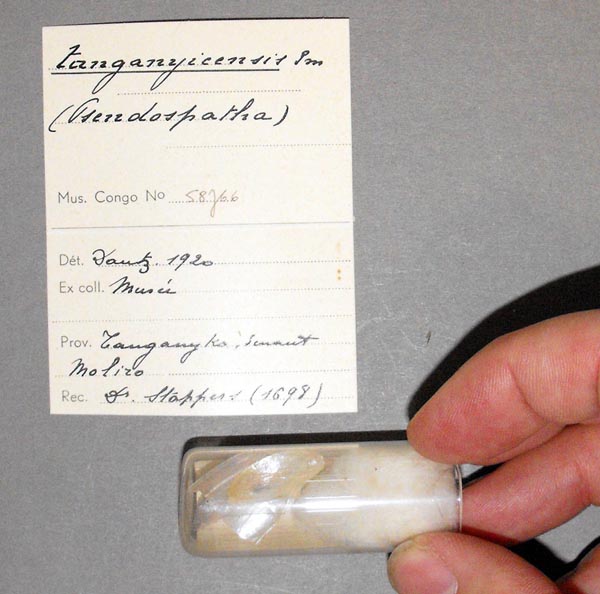 tanganyicensis Sm
(Pseudospatha)
Mus. Congo No
Dét. Dautz. 1920
Ex coll. Musée
Prov. Tanganyka:
Moliro
Rec. Dr. Stappers (1698)